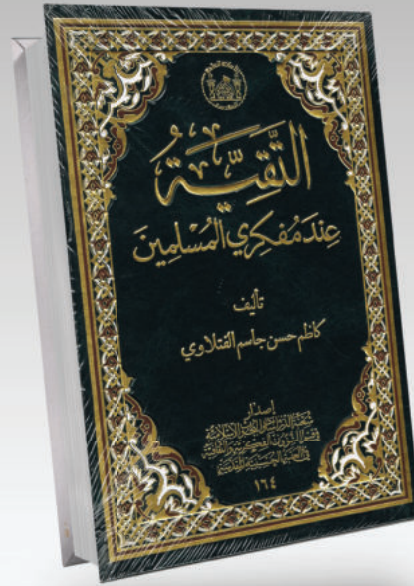 التَّقِيَّةُ
عِندَ مُفَكِّرِي المُسْلِمِينَ
تأليف
كاظم حسن جاسم الفتلاوي
إصدار
شعبة الدراسات والبحوث الإسلامية
في قسم الشؤون الفكرية والثقافية
في العتبة الحسينية المقدسة
١٦٤